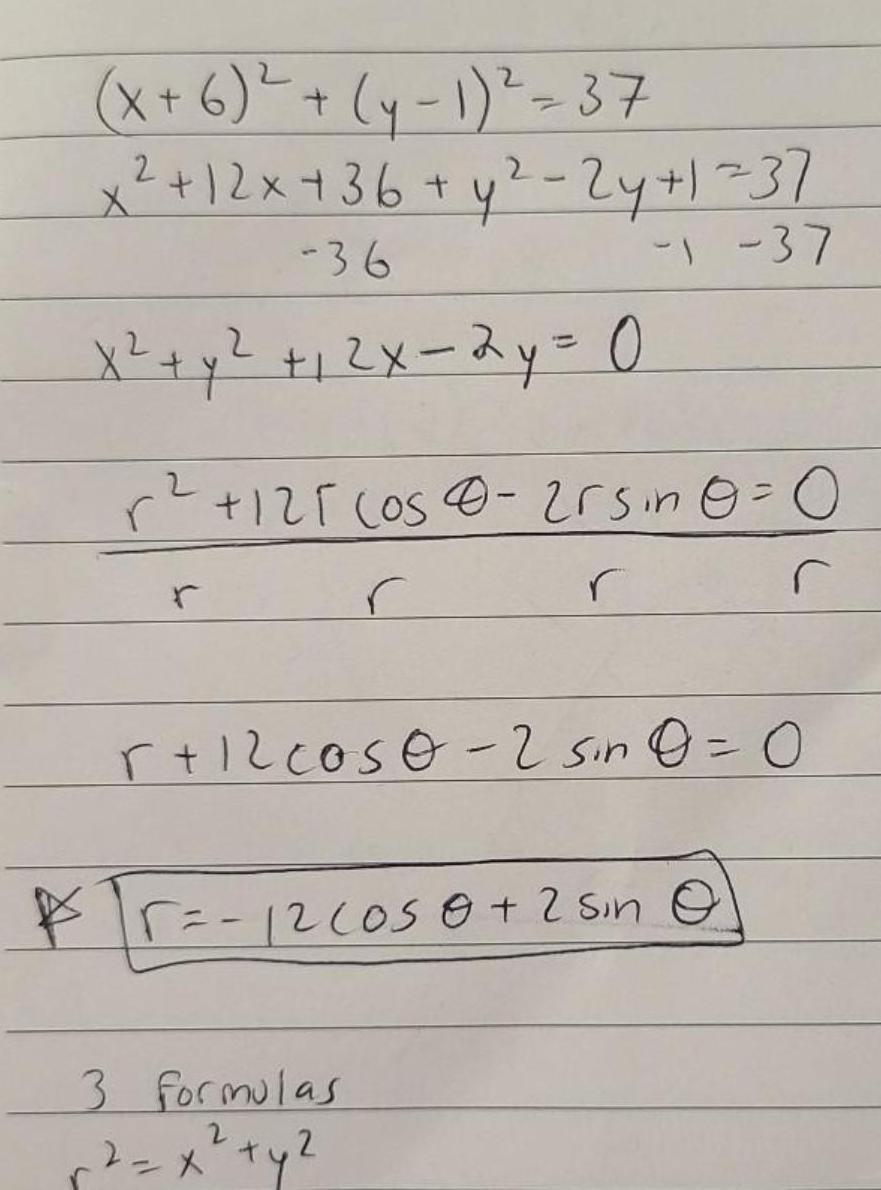 (x+6)² + (y-1)² = 37
x² + 12x + 36 + y² - 2y + 1 = 37
-36 -1 -37
x² + y² + 12x - 2y = 0
r² + 12r cos θ - 2r sin θ = 0
r r r r
r + 12 cos θ - 2 sin θ = 0
r = -12 cos θ + 2 sin θ
3 formulas
r² = x² + y²